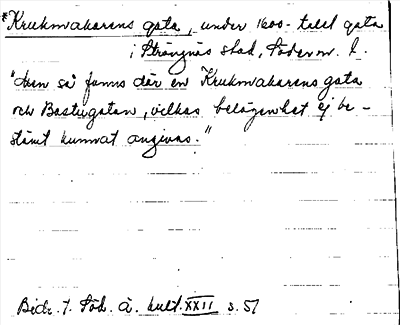 *Krukmakarens gata, under 1600-talet gata
i Strängnäs stad, Söderm. l.
"även så fanns där en Krukmakarens gata
och Bastugatan, vilkas belägenhet ej be-
stämt kunnat angivas."
Bidr. t. Söd. ä. kult. XXII s. 57